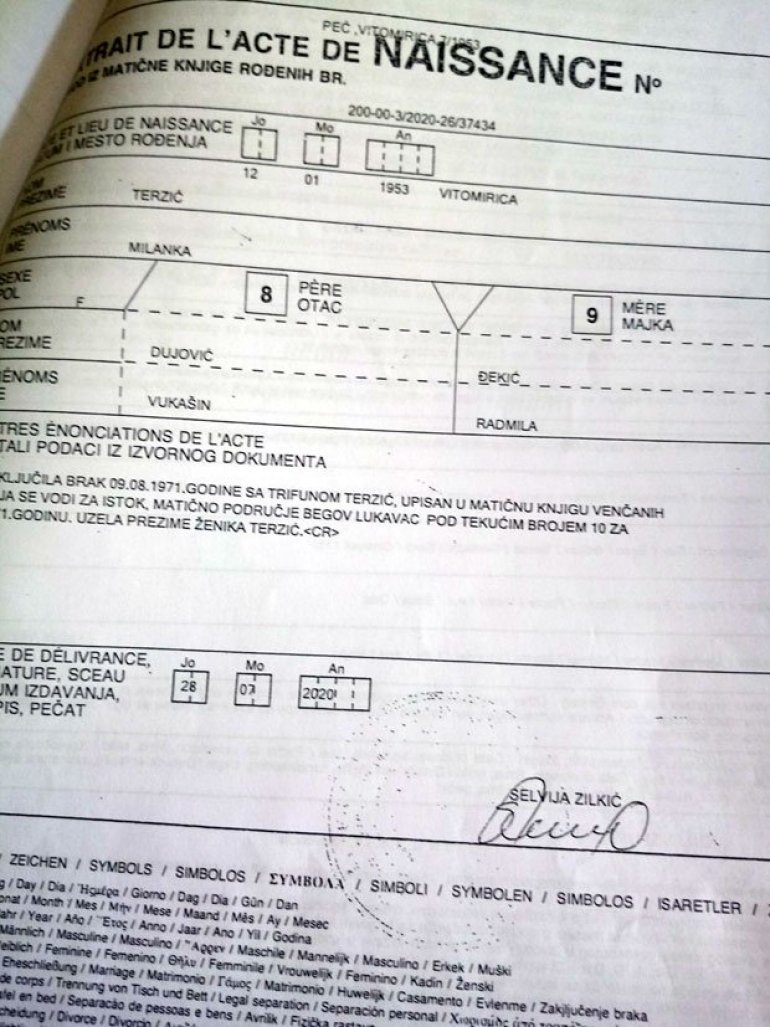 PEĆ ,VITOMIRICA 7/1953
TRAIT DE L'ACTE DE NAISSANCE Nº
IZ MATIČNE KNJIGE ROĐENIH BR.
200-00-3/2020-26/37434
ET LIEU DE NAISSANCE
UM I MESTO ROĐENJA
Jo Mo An
12 01 1953 VITOMIRICA
OM
REZIME TERZIĆ
PRÉNOMS
IME MILANKA
SEXE
POL F
8 PÈRE
OTAC
9 MÈRE
MAJKA
OM
REZIME DUJOVIĆ ĐEKIĆ
ÉNOMS
E VUKAŠIN RADMILA
TRES ÉNONCIATIONS DE L'ACTE
TALI PODACI IZ IZVORNOG DOKUMENTA
KLJUČILA BRAK 09.08.1971.GODINE SA TRIFUNOM TERZIĆ, UPISAN U MATIČNU KNJIGU VENČANIH
JA SE VODI ZA ISTOK, MATIČNO PODRUČJE BEGOV LUKAVAC POD TEKUĆIM BROJEM 10 ZA
1.GODINU. UZELA PREZIME ŽENIKA TERZIĆ.<CR>
E DE DÉLIVRANCE,
NATURE, SCEAU
UM IZDAVANJA,
PIS, PEČAT
Jo Mo An
28 07 2020
SELVIJA ZILKIĆ
/ ZEICHEN / SYMBOLS / SIMBOLOS / ΣΥΜΒΟΛΑ / SIMBOLI / SYMBOLEN / SIMBOLOS / ISARETLER /
g / Day / Día / Ἡμέρα / Giorno / Dag / Dia / Gün / Dan
onat / Month / Mes / Μήν / Mese / Maand / Mês / Ay / Mesec
ahr / Year / Año / Ἔτος / Anno / Jaar / Ano / Yil / Godina
Männlich / Masculine / Masculino / Ἄρρεν / Maschile / Mannelijk / Masculino / Erkek / Muški
eiblich / Feminine / Femenino / Θῆλυ / Femminile / Vrouwelijk / Feminino / Kadin / Ženski
Eheschließung / Marriage / Matrimonio / Γάμος / Matrimonio / Huwelijk / Casamento / Evlenme / Zakjljučenje braka
de corps / Trennung von Tisch und Bett / Legal separation / Separación personal /
afel en bed / Separacão de pessoas e bens / Avrilik / Fizička
cheidung / Divorce / Divorcio